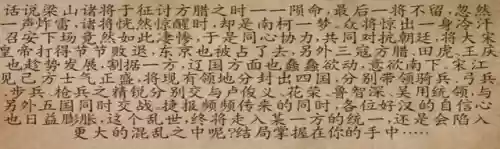 话说梁山诸将于征讨方腊之时一一陨命,最后一将不留,忽然
一声炸雷,诸将恍然惊醒时,却是南柯一梦。众将惊出一身冷汗
召安下场竟然如此凄惨,于是同心协力,共同对抗朝廷,将大宋
皇帝打得节节败退,东京也被占了去。另外三寇方腊、田虎、王庆
也趁势发展,割据一方,辽国方面也蠢蠢欲动,意欲南下。宋江
见己方士气正盛,将现有领地分封出四国,分别带领骑兵,弓兵
、步兵、枪兵之精锐分别交与卢俊义、花荣、鲁智深、吴用统领,与
另外五国同时交战。捷报频频传来的同时,各位好汉的自信心
也日益膨胀,这个乱世,终将走入某一方的统一,还是会陷入
更大的混乱之中呢?结局掌握在你的手中·····